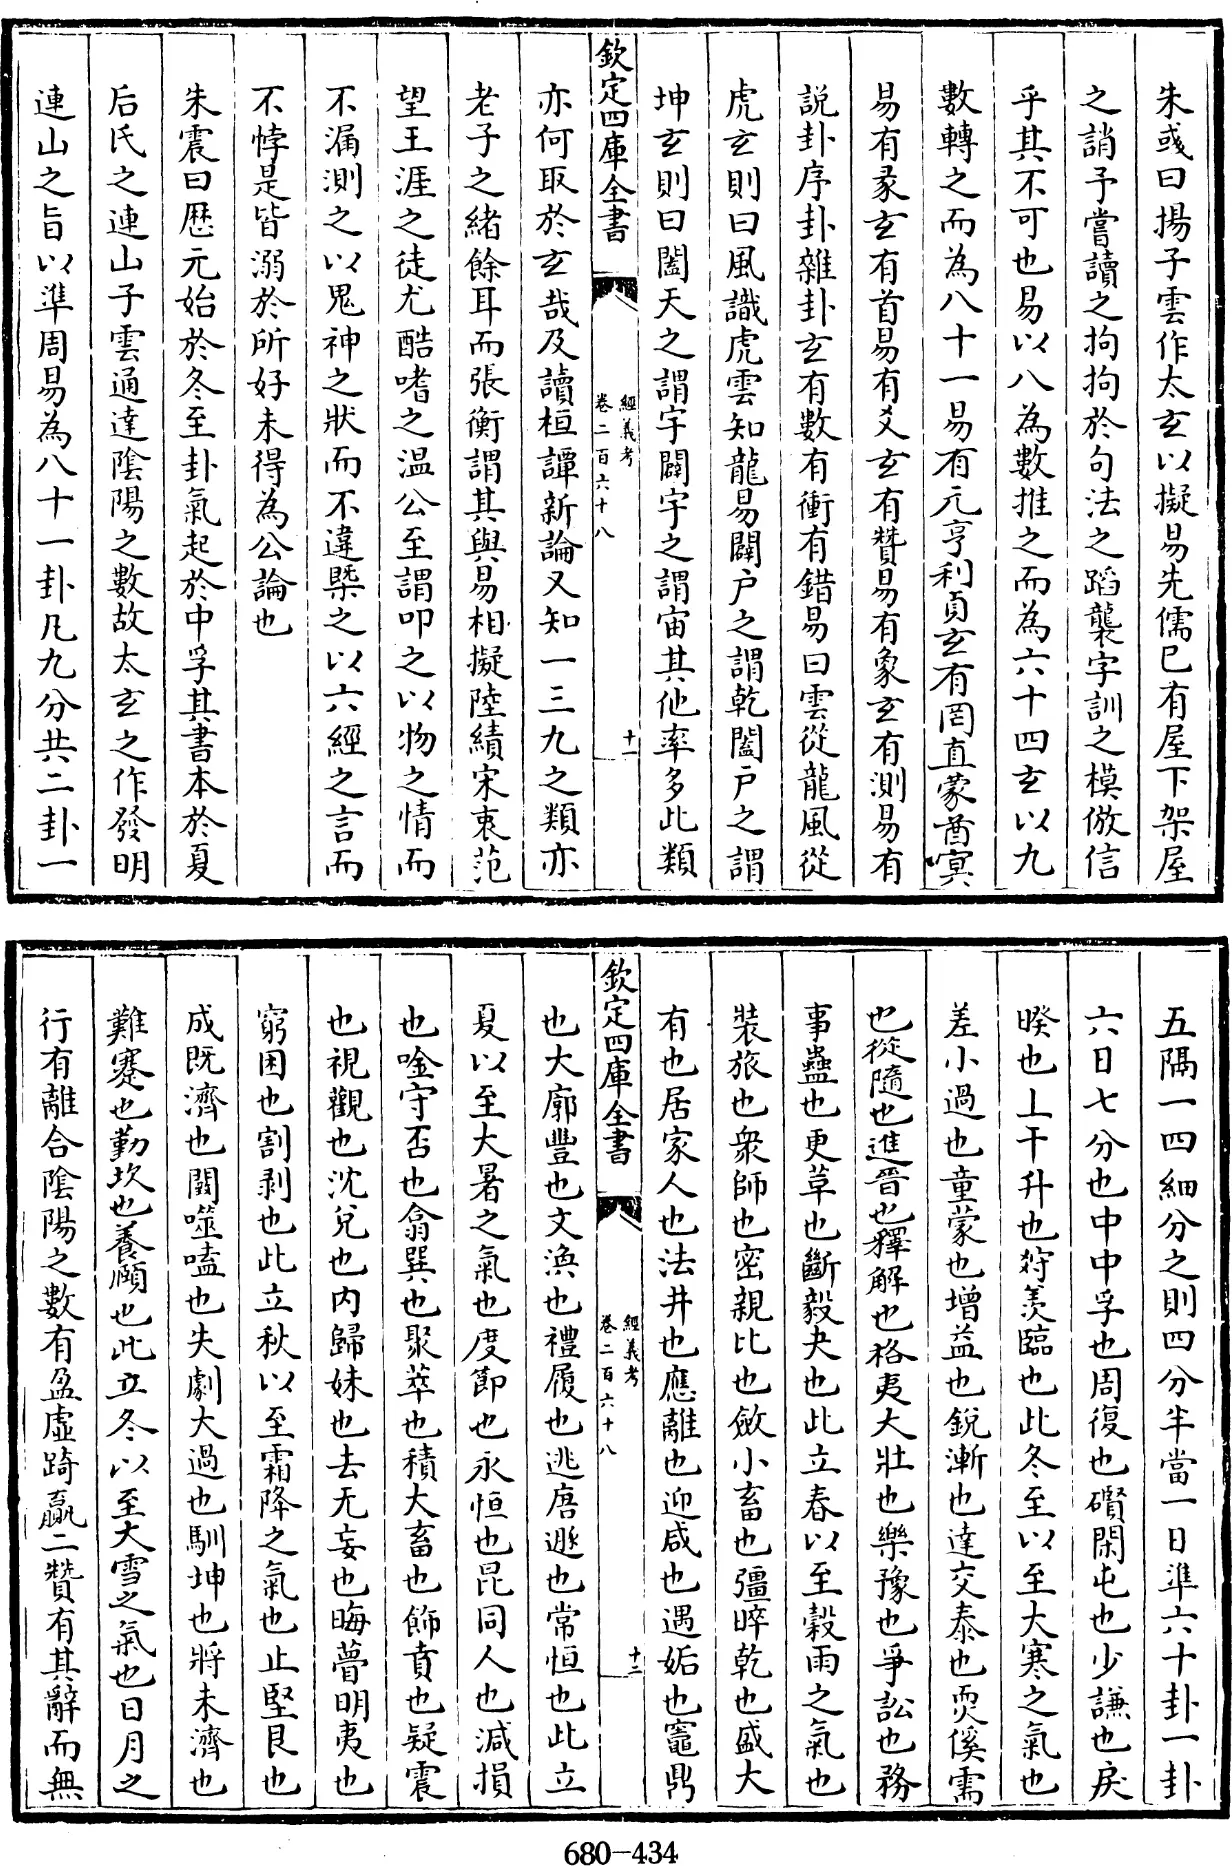 朱彧曰揚子雲作太玄以擬易先儒已有屋下架屋
之誚予嘗讀之拘拘於句法之蹈襲字訓之模倣信
乎其不可也易以八為數推之而為六十四玄以九
數轉之而為八十一易有元亨利貞玄有罔直蒙酋㝠
易有彖玄有首易有爻玄有贊易有象玄有測易有
說卦序卦雜卦玄有數有衝有錯易曰雲從龍風從
虎玄則曰風識虎雲知龍易闢户之謂乾闔户之謂
坤玄則曰闔天之謂宇闢宇之謂宙其他率多此類
欽定四庫全書
經義考
卷二百六十八
十一
亦何取於玄哉及讀桓譚新論又知一三九之類亦
老子之緒餘耳而張衡謂其與易相擬陸績宋衷范
望王涯之徒尤酷嗜之温公至謂叩之以物之情而
不漏測之以鬼神之狀而不違槩之以六經之言而
不悖是皆溺於所好未得為公論也
朱震曰厯元始於冬至卦氣起於中孚其書本於夏
后氏之連山子雲通達陰陽之數故太玄之作發明
連山之旨以準周易為八十一卦凡九分共二卦一
五隔一四細分之則四分半當一日準六十卦一卦
六日七分也中中孚也周復也礥閑屯也少謙也戾
睽也上干升也狩羡臨也此冬至以至大寒之氣也
差小過也童蒙也增益也銳漸也達交泰也耎傒需
也從隨也進晉也釋解也格夷大壯也樂豫也爭訟也務
事蠱也更革也斷毅夬也此立春以至榖雨之氣也
裝旅也衆師也密親比也斂小畜也彊睟乾也盛大
有也居家人也法井也應離也迎咸也遇姤也竈鼎
欽定四庫全書
經義考
卷二百六十八
十二
也大廓豐也文渙也禮履也逃唐遯也常恒也此立
夏以至大暑之氣也度節也永恒也昆同人也減損
也唫守否也翕巽也聚萃也積大畜也飾賁也疑震
也視觀也沈兌也内歸妹也去无妄也晦瞢明夷也
窮困也割剥也此立秋以至霜降之氣也止堅艮也
成既濟也闕噬嗑也失劇大過也馴坤也將未濟也
難蹇也勤坎也養頤也此立冬以至大雪之氣也日月之
行有離合陰陽之數有盈虚踦贏二贊有其辭而無
680-434